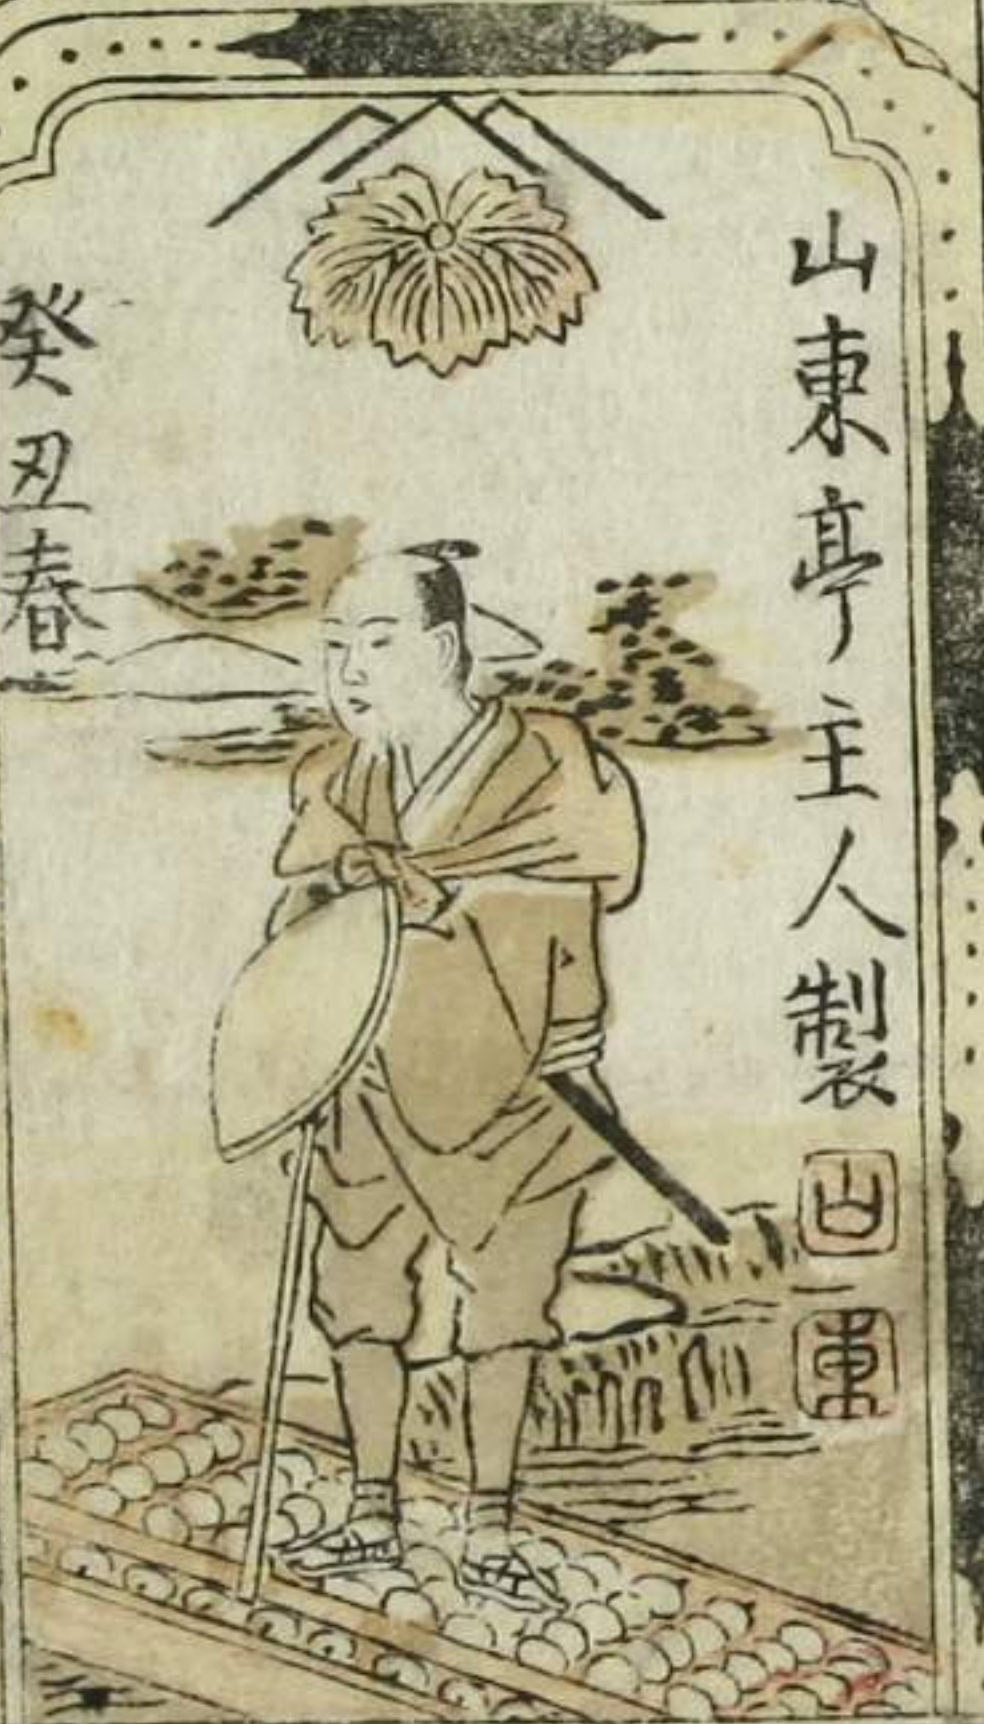 山東亭主人製
山
東
癸丑春